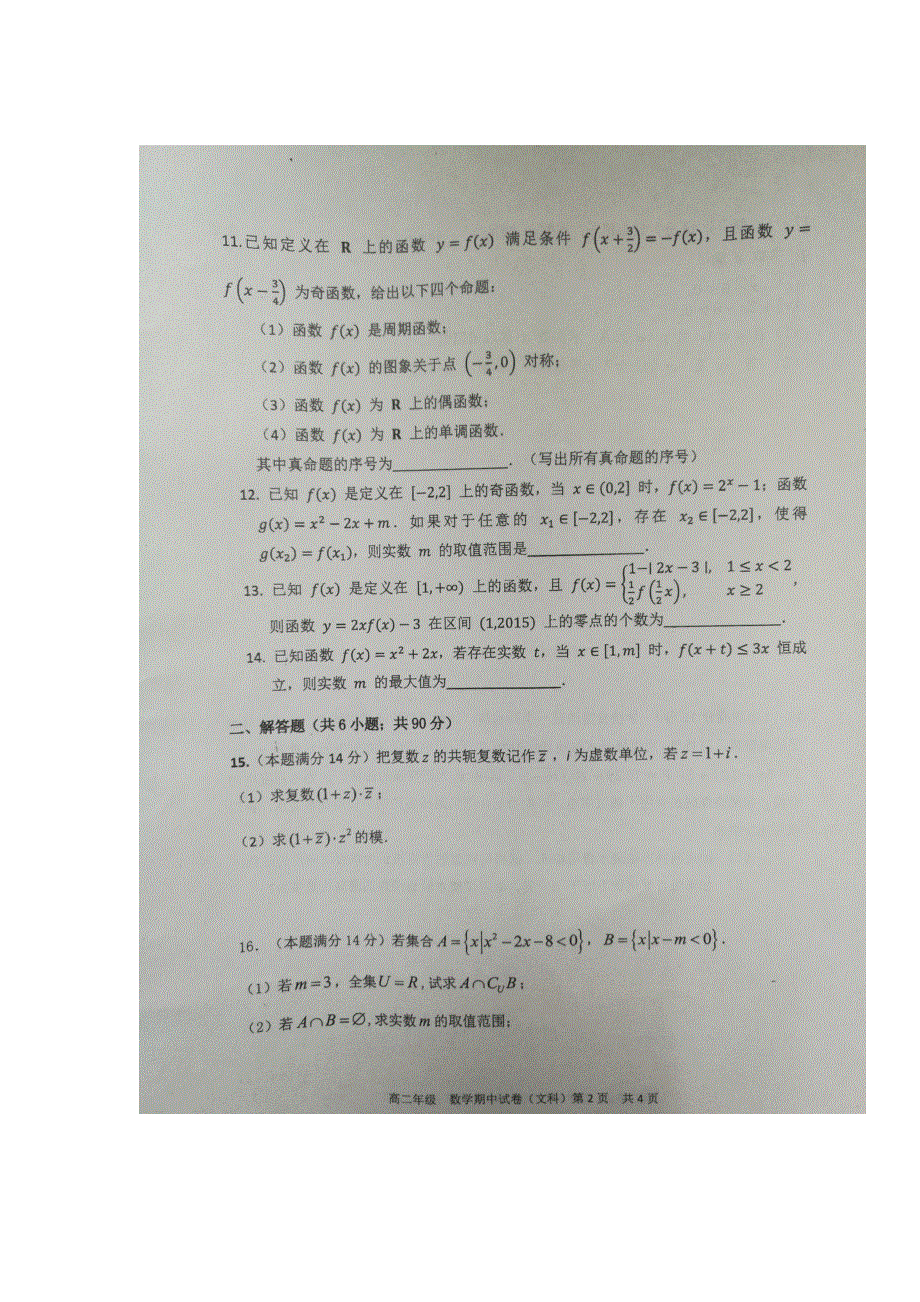 11.已知定义在 R 上的函数 y = f(x) 满足条件 f(x + 3/2) = −f(x)，且函数 y =
f(x − 3/4) 为奇函数，给出以下四个命题：
（1）函数 f(x) 是周期函数；
（2）函数 f(x) 的图象关于点 (−3/4,0) 对称；
（3）函数 f(x) 为 R 上的偶函数；
（4）函数 f(x) 为 R 上的单调函数.
其中真命题的序号为______________．（写出所有真命题的序号）
12. 已知 f(x) 是定义在 [−2,2] 上的奇函数，当 x ∈ (0,2] 时，f(x) = 2^x − 1；函数
g(x) = x² − 2x + m．如果对于任意的 x₁ ∈ [−2,2]，存在 x₂ ∈ [−2,2]，使得
g(x₂) = f(x₁)，则实数 m 的取值范围是______________.
13. 已知 f(x) 是定义在 [1,+∞) 上的函数，且 f(x) = {1−| 2x − 3 |, 1 ≤ x < 2; 1/2 f(1/2 x), x ≥ 2，
则函数 y = 2xf(x) − 3 在区间 (1,2015) 上的零点的个数为______________.
14. 已知函数 f(x) = x² + 2x，若存在实数 t，当 x ∈ [1,m] 时，f(x + t) ≤ 3x 恒成
立，则实数 m 的最大值为______________.
二、解答题（共 6 小题；共 90 分）
15.（本题满分 14 分）把复数 z 的共轭复数记作 z̅ ，i 为虚数单位，若 z=1+i .
（1）求复数(1+z)·z̅；
（2）求(1+z̅)·z²的模.
16. （本题满分 14 分）若集合 A={x|x²−2x−8<0}，B={x|x−m<0}.
（1）若 m=3，全集U=R，试求 A∩C_U B；
（2）若 A∩B=∅，求实数 m 的取值范围；
高二年级 数学期中试卷（文科）第 2 页 共 4 页